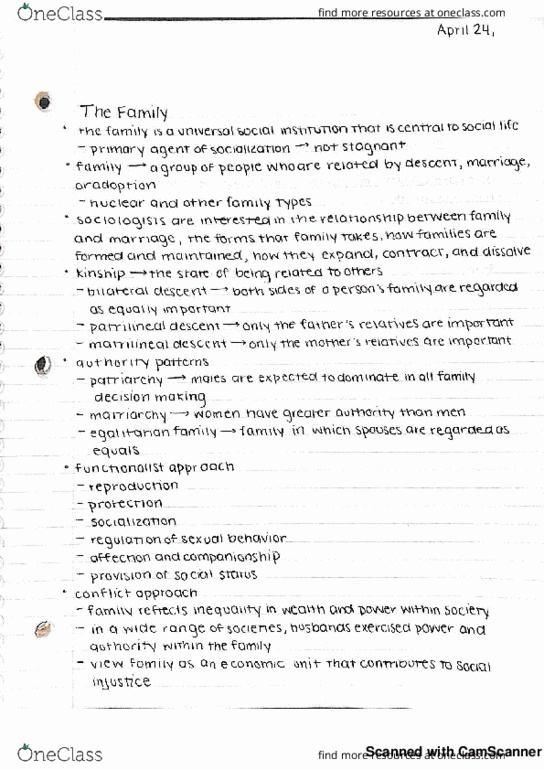 OneClass
find more resources at oneclass.com
April 24,
The Family
• the family is a universal social institution that is central to social life
- primary agent of socialization → not stagnant
• family → a group of people who are related by descent, marriage,
or adoption
- nuclear and other family types
• sociologists are interested in the relationship between family
and marriage, the forms that family takes, how families are
formed and maintained, how they expand, contract, and dissolve
• kinship → the state of being related to others
- bilateral descent → both sides of a person's family are regarded
as equally important
- patrilineal descent → only the father's relatives are important
- matrilineal descent → only the mother's relatives are important
• authority patterns
- patriarchy → males are expected to dominate in all family
decision making
- matriarchy → women have greater authority than men
- egalitarian family → family in which spouses are regarded as
equals
• functionalist approach
- reproduction
- protection
- socialization
- regulation of sexual behavior
- affection and companionship
- provision of social status
• conflict approach
- family reflects inequality in wealth and power within society
- in a wide range of societies, husbands exercised power and
authority within the family
- view family as an economic unit that contributes to social
injustice
OneClass
find more resources at oneclass.com
Scanned with CamScanner